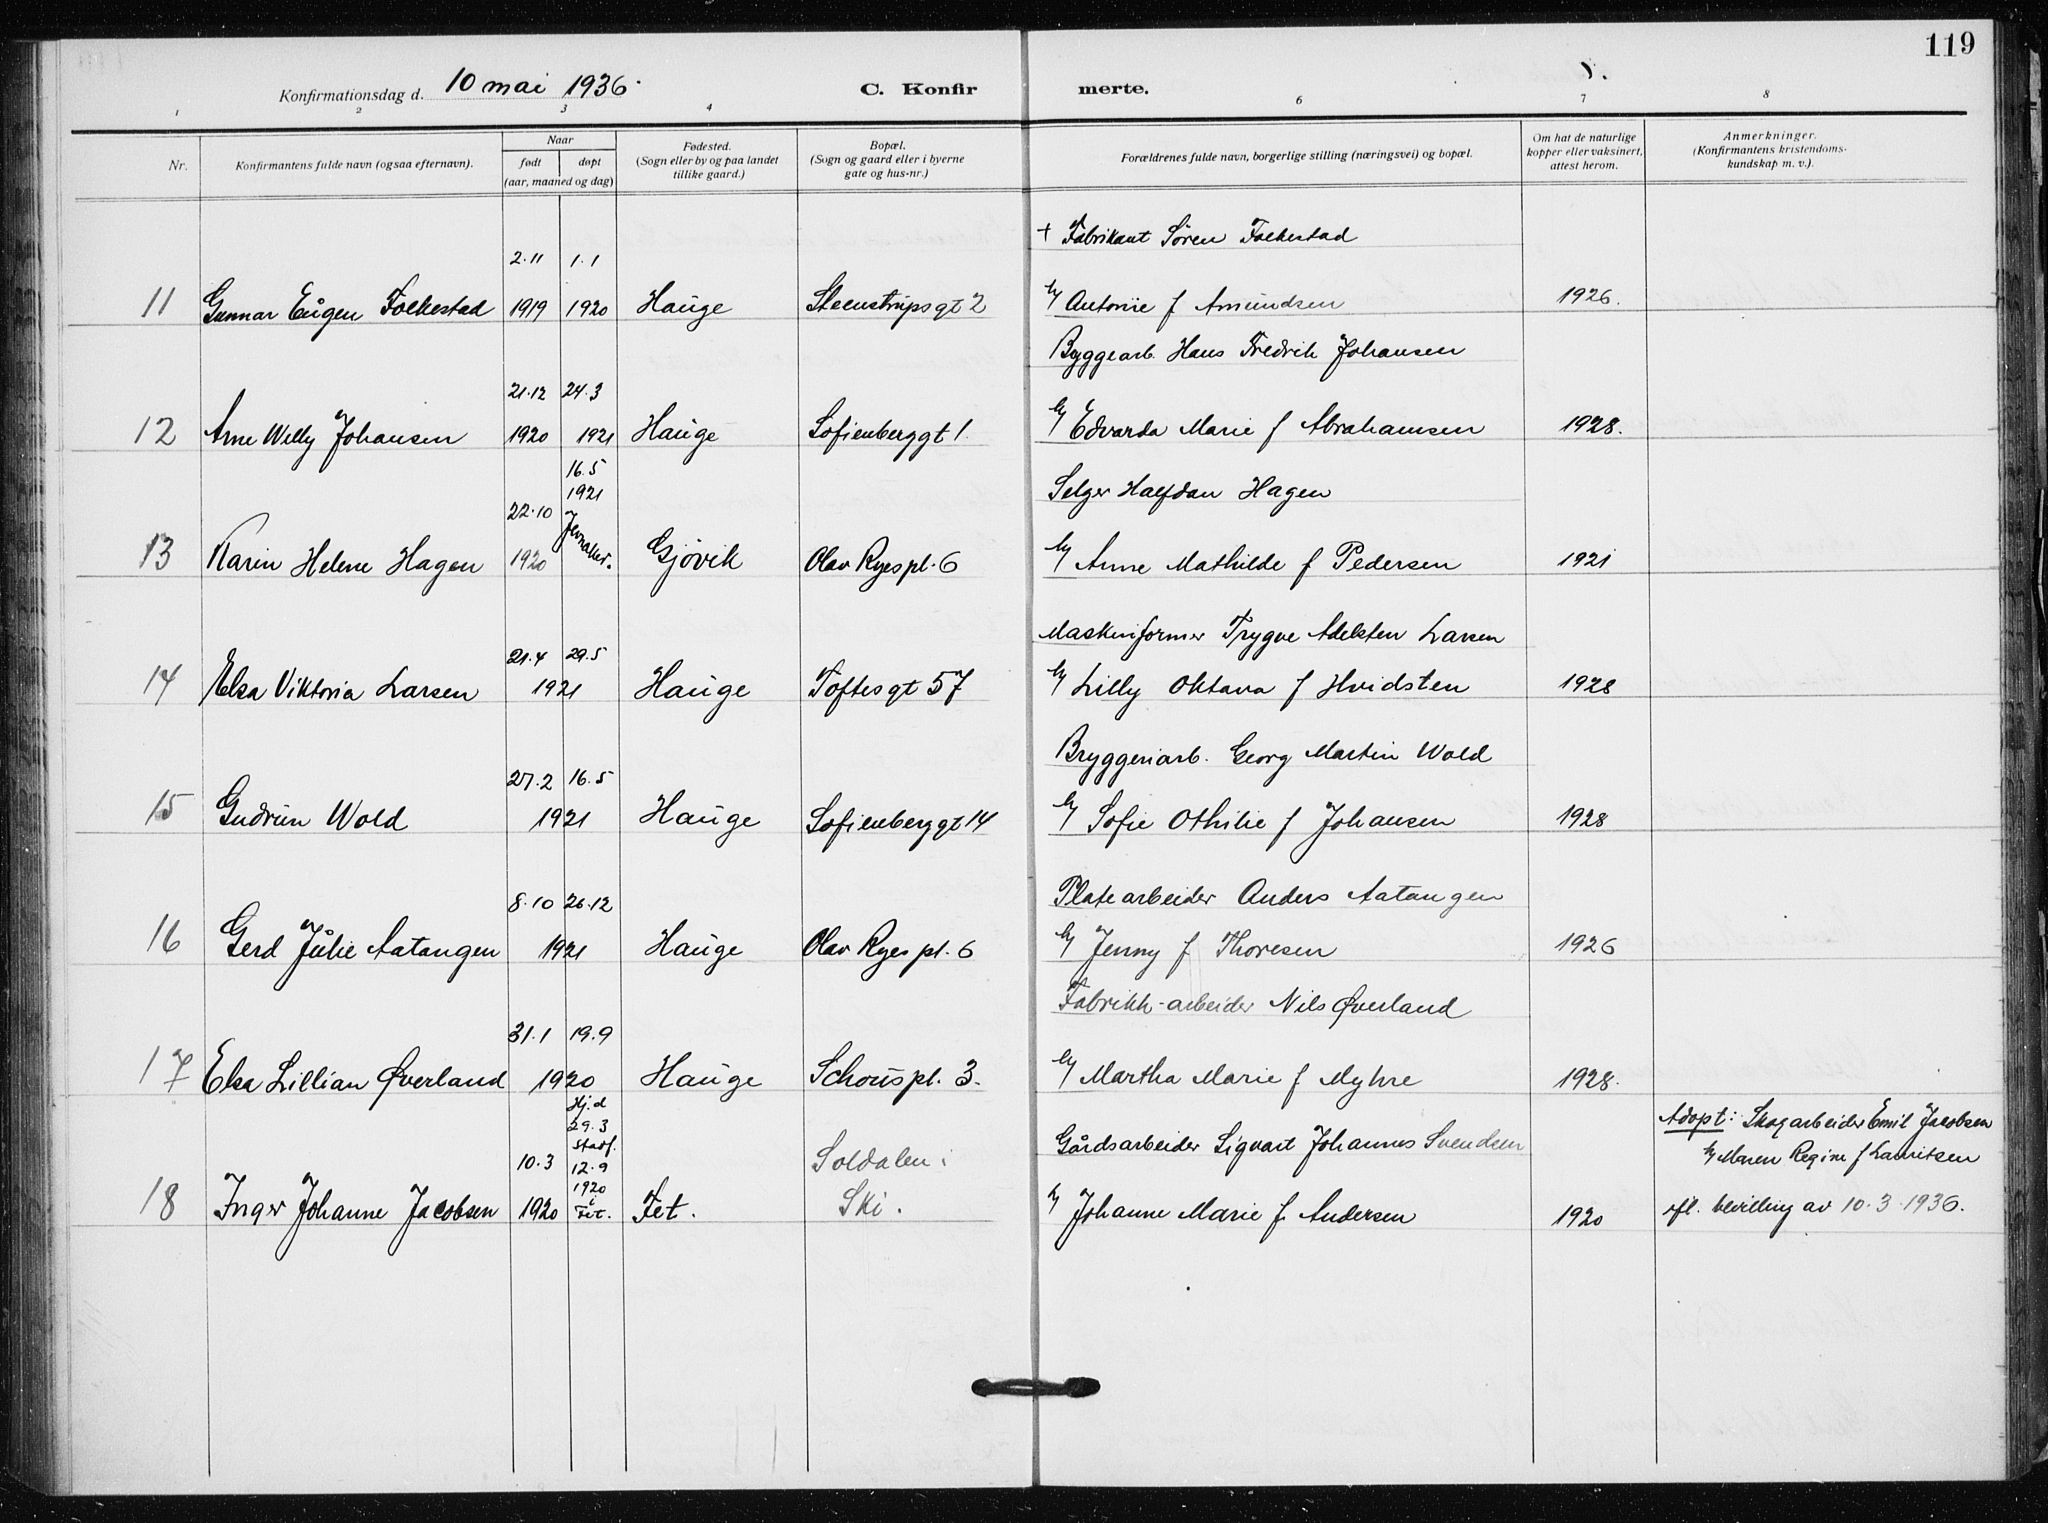 119
Konfirmationsdag d. 10 mai 1936.
C. Konfir merte.
1 2 3 4 6 7 8
Nr.
Konfirmantens fulde navn (ogsaa efternavn).
Naar
født døpt
(aar, maaned og dag)
Fødested.
(Sogn eller by og paa landet
tillike gaard.)
Bopæl.
(Sogn og gaard eller i byerne
gate og hus-nr.)
Forældrenes fulde navn, borgerlige stilling (næringsvei) og bopæl.
Om hat de naturlige
kopper eller vaksinert,
attest herom.
Anmerkninger.
(Konfirmantens kristendoms-
kundskap m. v.).
+ Fabrikant Sören Folkestad
2.11 1.1
11 Gunnar Eugen Folkestad 1919 1920 Hauge Steenstrupsgt 2 Antonie f Amundsen 1926.
Byggearb. Hans Fredrik Johansen
21.12 24.3
12 Arne Willy Johansen 1920 1921 Hauge Sofienberggt 1. Edvarda Marie f Abrahamsen 1928.
16.5
1921
Selger Halfdan Hagen
22.10 Jevnaker.
13 Karin Helene Hagen 1920 Gjövik Olav Ryes pl. 6 Anne Mathilde f Pedersen 1921
Maskinformer Trygve Adelsten Larsen
21.4 29.5
14 Elsa Viktoria Larsen 1921 Hauge Toftesgt 57 Lilly Oktava f Hvidsten 1928
Bryggeriarb. Georg Martin Wold
27.2 16.5
15 Gudrun Wold 1921 Hauge Sofienberggt 14 Sofie Othilie f Johansen 1928
Platearbeider Anders Aatangen
8.10 26.12
16 Gerd Julie Aatangen 1921 Hauge Olav Ryes pl. 6 Jenny f Thoresen 1926
Fabrikk-arbeider Nils Øverland
31.1 19.9
17 Elsa Lillian Øverland 1920 Hauge Schous pl. 3. Martha Marie f Myhre 1928.
Hj.d
29.3
stadf.
12.9
1920
i
Fet.
Soldalen i
Gårdsarbeider Sigvart Johannes Svendsen
10.3
18 Inger Johanne Jacobsen 1920 Fet. Ski. Johanne Marie f. Andersen 1920
Adopt: Skogarbeider Emil Jacobsen
Maren Regine f Lauritsen
ifl. bevilling av 10.3.1936.